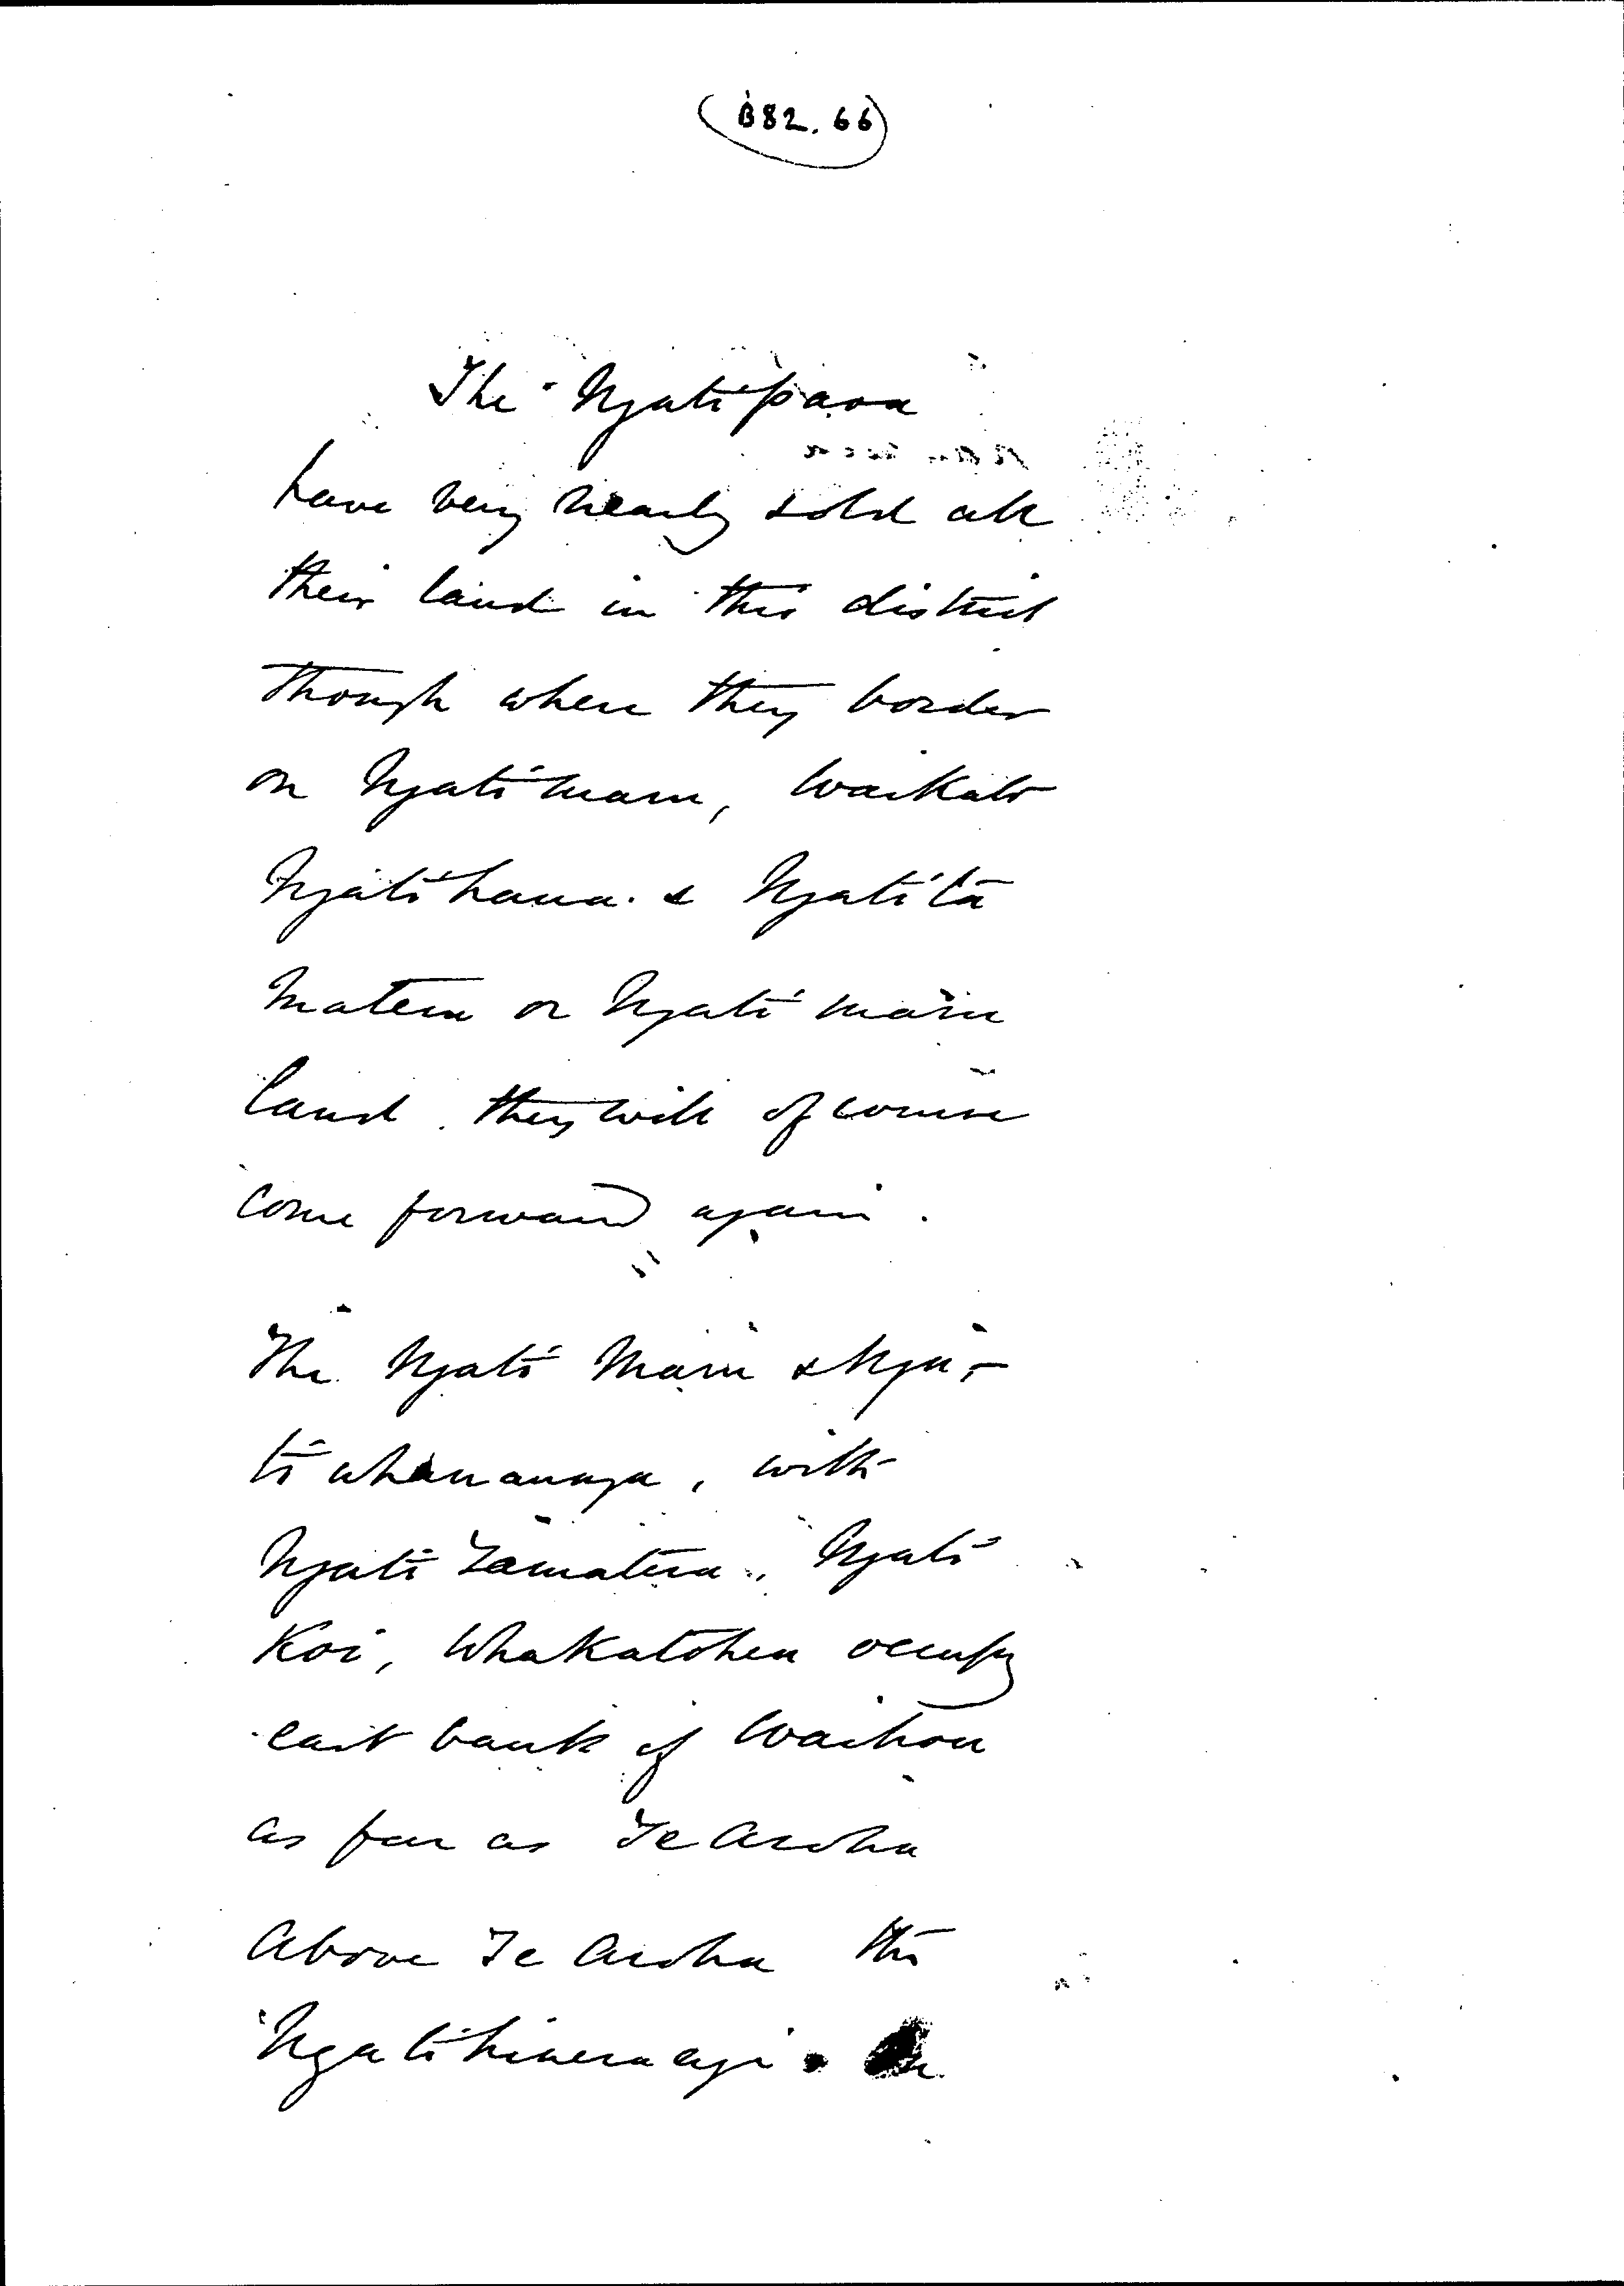 B82.66
The Ngatipaoa
have very nearly sold all
their land in this district
though where they border
on Ngatimaru, Waikato
Ngatihaua & Ngatita
matera or Ngati maru
land they will of course
come forward again.
The Ngati Maru & Nga-
ti whanaunga, with
Ngati Tamatera, Ngati
Koi, Whakatohea occupy
east bank of Waihou
as far as Te Aroha
Above Te Aroha the
Ngatihinerangi.